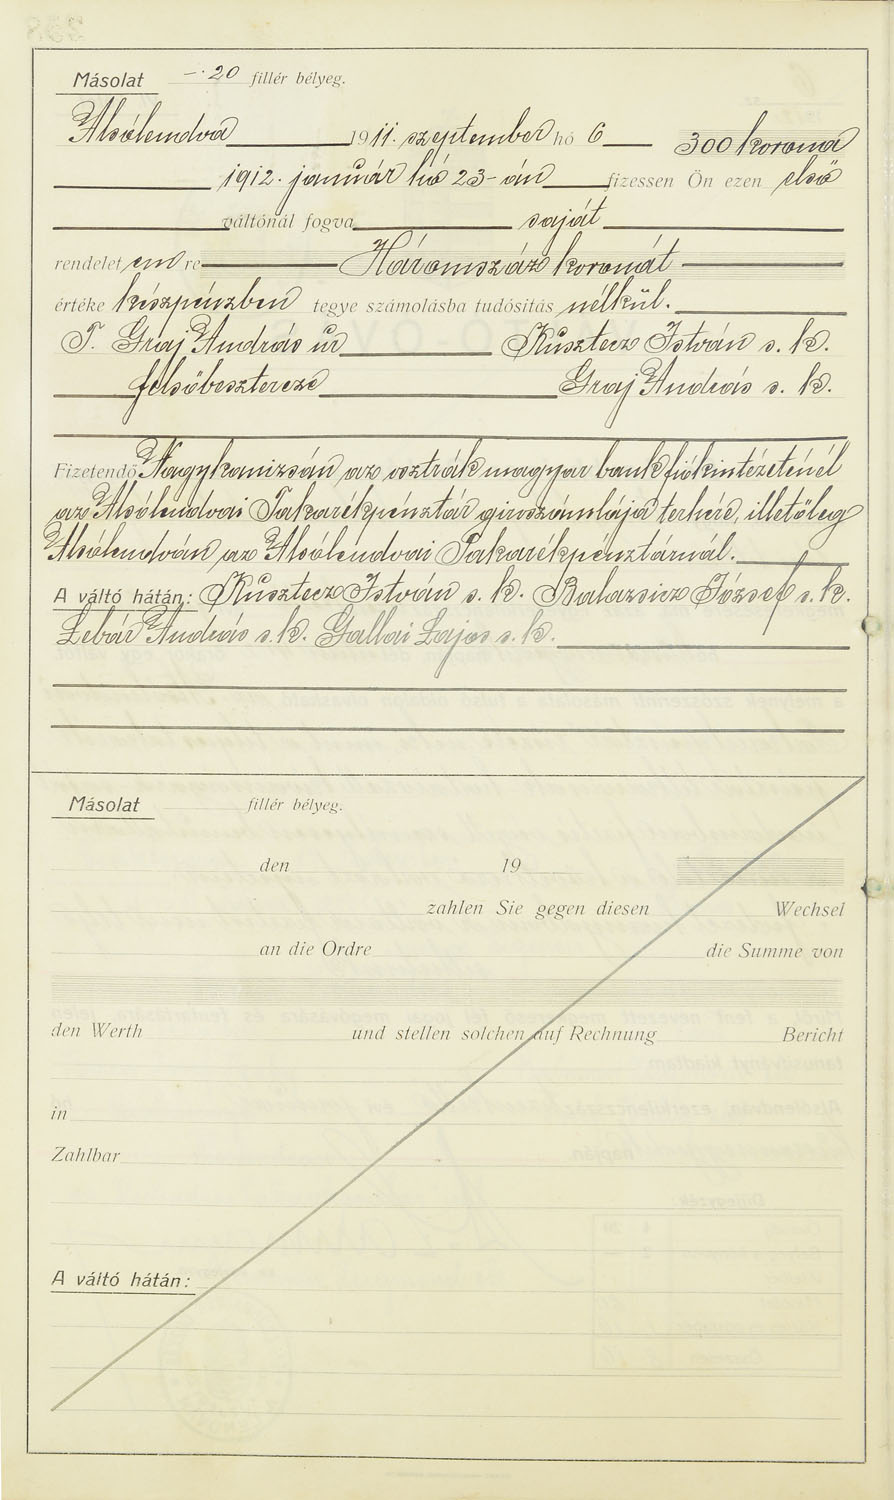 Másolat –·20 fillér bélyeg.
Alsólendva 1911. szeptember hó 6 300 korona
1912. január hó 23-án fizessen Ön ezen első
váltónál fogva saját
rendeletem re Háromszáz koronát
értéke készpénzben tegye számolásba tudósítás nélkül.
T. Graj András úr Kusztecz István s. k.
felsőbeszterecze Graj András s. k.
Fizetendő Nagykanizsán az osztrák magyar bank fiókintézeténél
az Alsólendvai Takarékpénztár giroszámlája terhére, illetőleg
Alsólendván az Alsólendvai Takarékpénztárnál.
A váltó hátán: Kusztecz István s. k. Balazsicz József s. k.
Lebár András s. k. Gallai Lajos s. k.
Másolat fillér bélyeg.
den 19
zahlen Sie gegen diesen Wechsel
an die Ordre die Summe von
den Werth und stellen solchen auf Rechnung Bericht
in
Zahlbar
A váltó hátán: